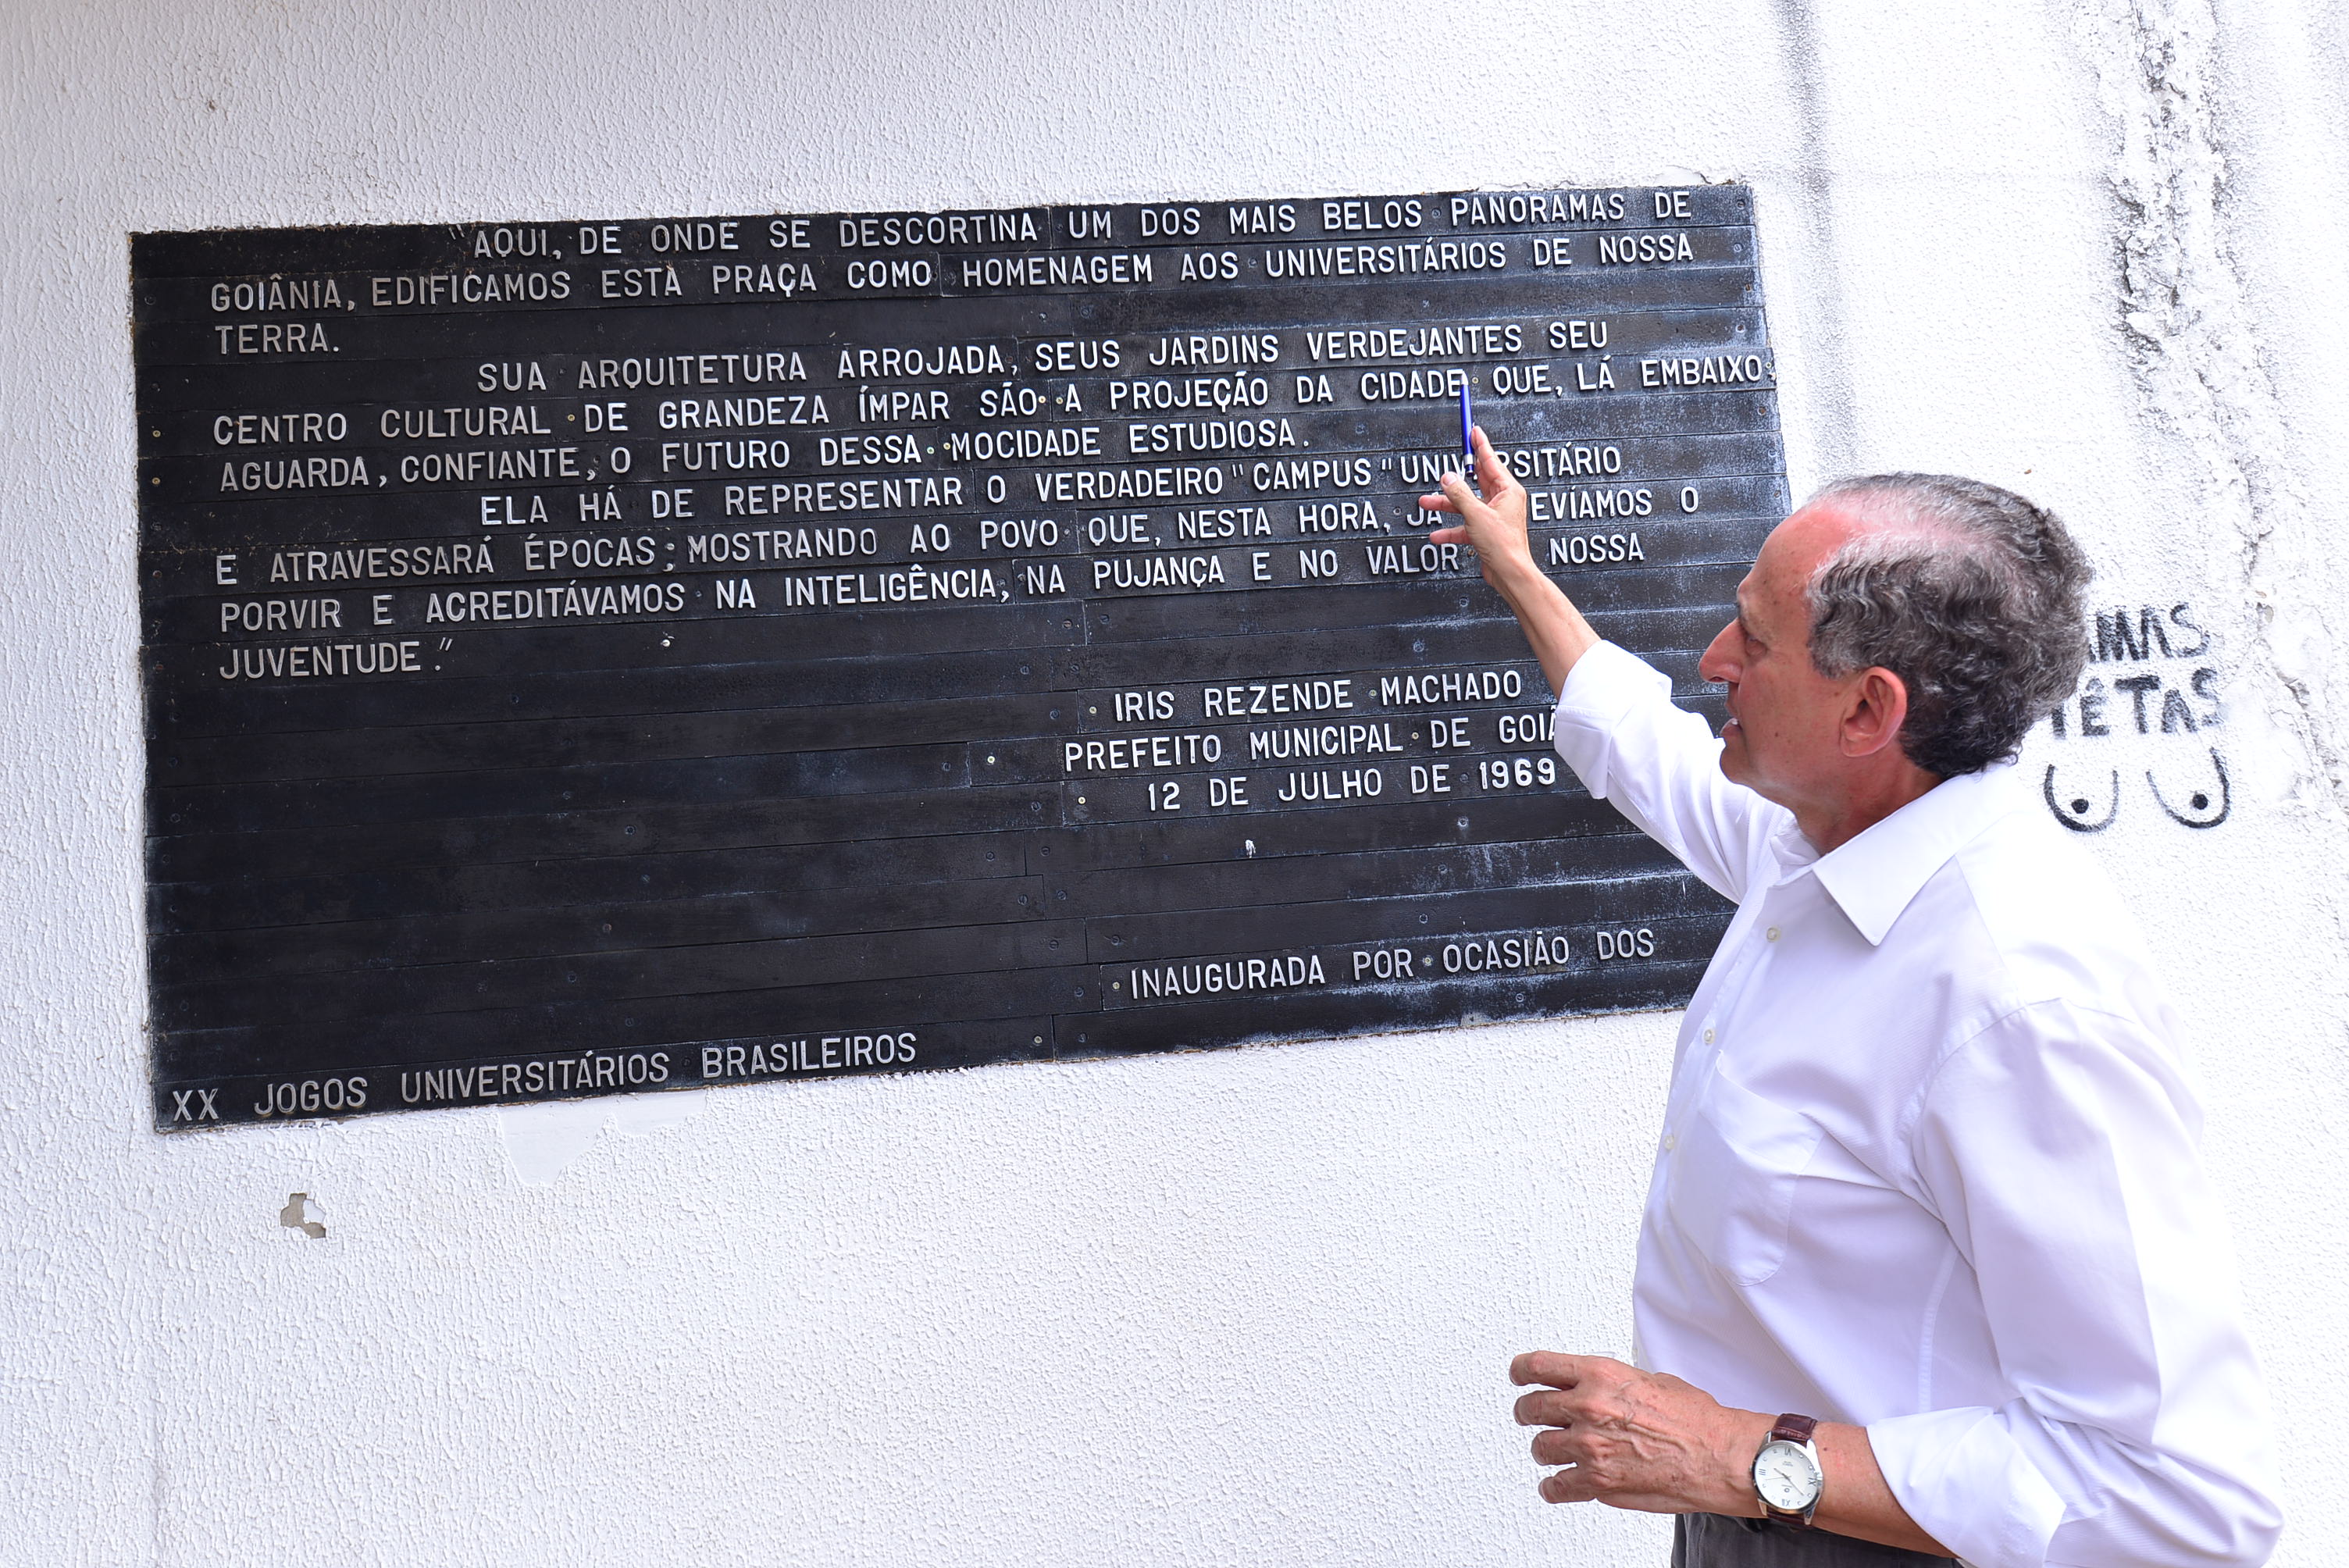 "AQUI, DE ONDE SE DESCORTINA UM DOS MAIS BELOS PANORAMAS DE
GOIÂNIA, EDIFICAMOS ESTA PRAÇA COMO HOMENAGEM AOS UNIVERSITÁRIOS DE NOSSA
TERRA.
SUA ARQUITETURA ARROJADA, SEUS JARDINS VERDEJANTES SEU
CENTRO CULTURAL DE GRANDEZA ÍMPAR SÃO A PROJEÇÃO DA CIDADE QUE, LÁ EMBAIXO,
AGUARDA, CONFIANTE, O FUTURO DESSA MOCIDADE ESTUDIOSA.
ELA HÁ DE REPRESENTAR O VERDADEIRO "CAMPUS" UNIVERSITÁRIO
E ATRAVESSARÁ ÉPOCAS; MOSTRANDO AO POVO QUE, NESTA HORA, JÁ EVÍAMOS O
PORVIR E ACREDITÁVAMOS NA INTELIGÊNCIA, NA PUJANÇA E NO VALOR NOSSA
JUVENTUDE."
IRIS REZENDE MACHADO
PREFEITO MUNICIPAL DE GOIÂ
12 DE JULHO DE 1969
INAUGURADA POR OCASIÃO DOS
XX JOGOS UNIVERSITÁRIOS BRASILEIROS
TÊTAS